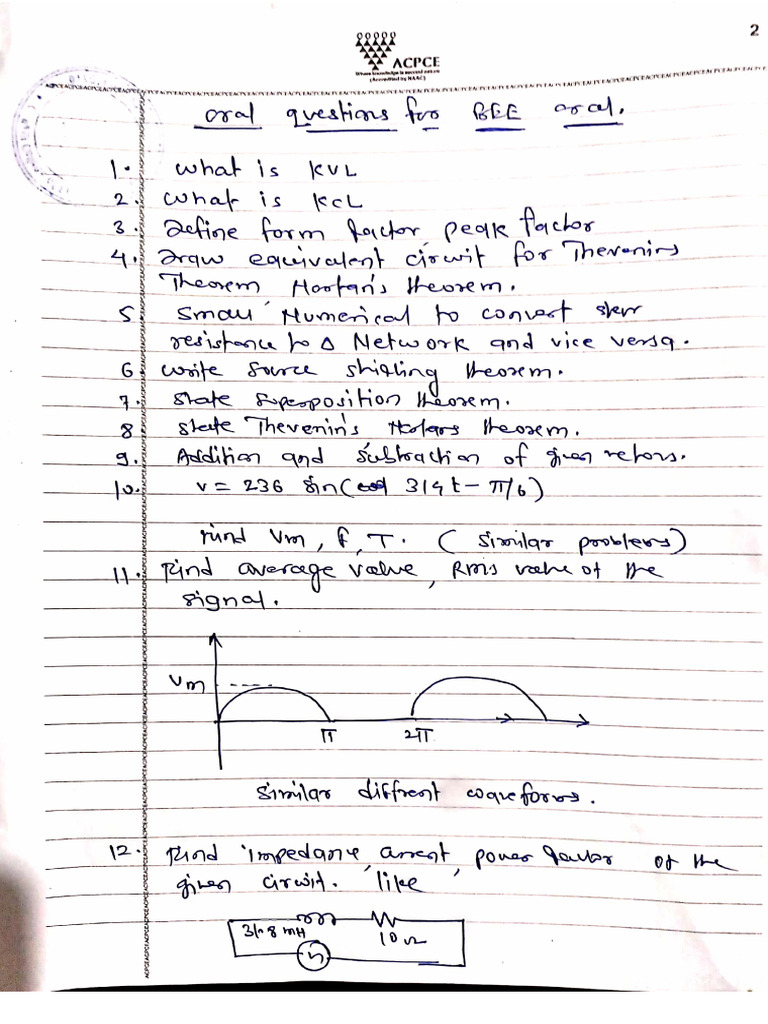 2
ACPCE
Where knowledge is succeed eaten
(Accredited by NAAC)
oral questions for BEE oral.
1. What is KVL
2. What is KCL
3. Define form factor, peak factor
4. Draw equivalent circuit for Thevenins
Theorem Nortan's theorem.
5. Small Numerical to convert star
resistance to Δ Network and vice versa.
6. write source shifting theorem.
7. state superposition theorem.
8. state Thevenin's Nortans theorem.
9. Addition and subtraction of given vetors.
10. v = 236 sin( 314t - π/6)
Find Vm, f, T. ( similar problems)
11. Find average value, RMS value of the
signal.
Vm
π 2π
similar diffrent waveforms.
12. Find impedance, current, power factor of the
given circuit. like
31.8 mH 10Ω